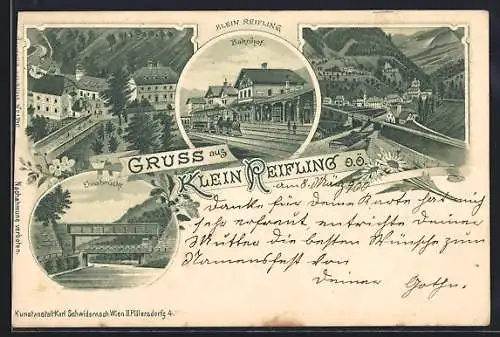 KLEIN REIFLING
Bahnhof.
GRUSS aus
KLEIN REIFLING O.Ö.
Ennsbrücke
am 8. März 1900
Danke für deine Karte hat mich
sehr erfreut entrichte deiner
Mutter die besten Wünsche zum
Namensfest von
deiner
Nachahmung verboten.
Kunstanstalt Karl Schwidernoch Wien II. Pillersdorfg 4.